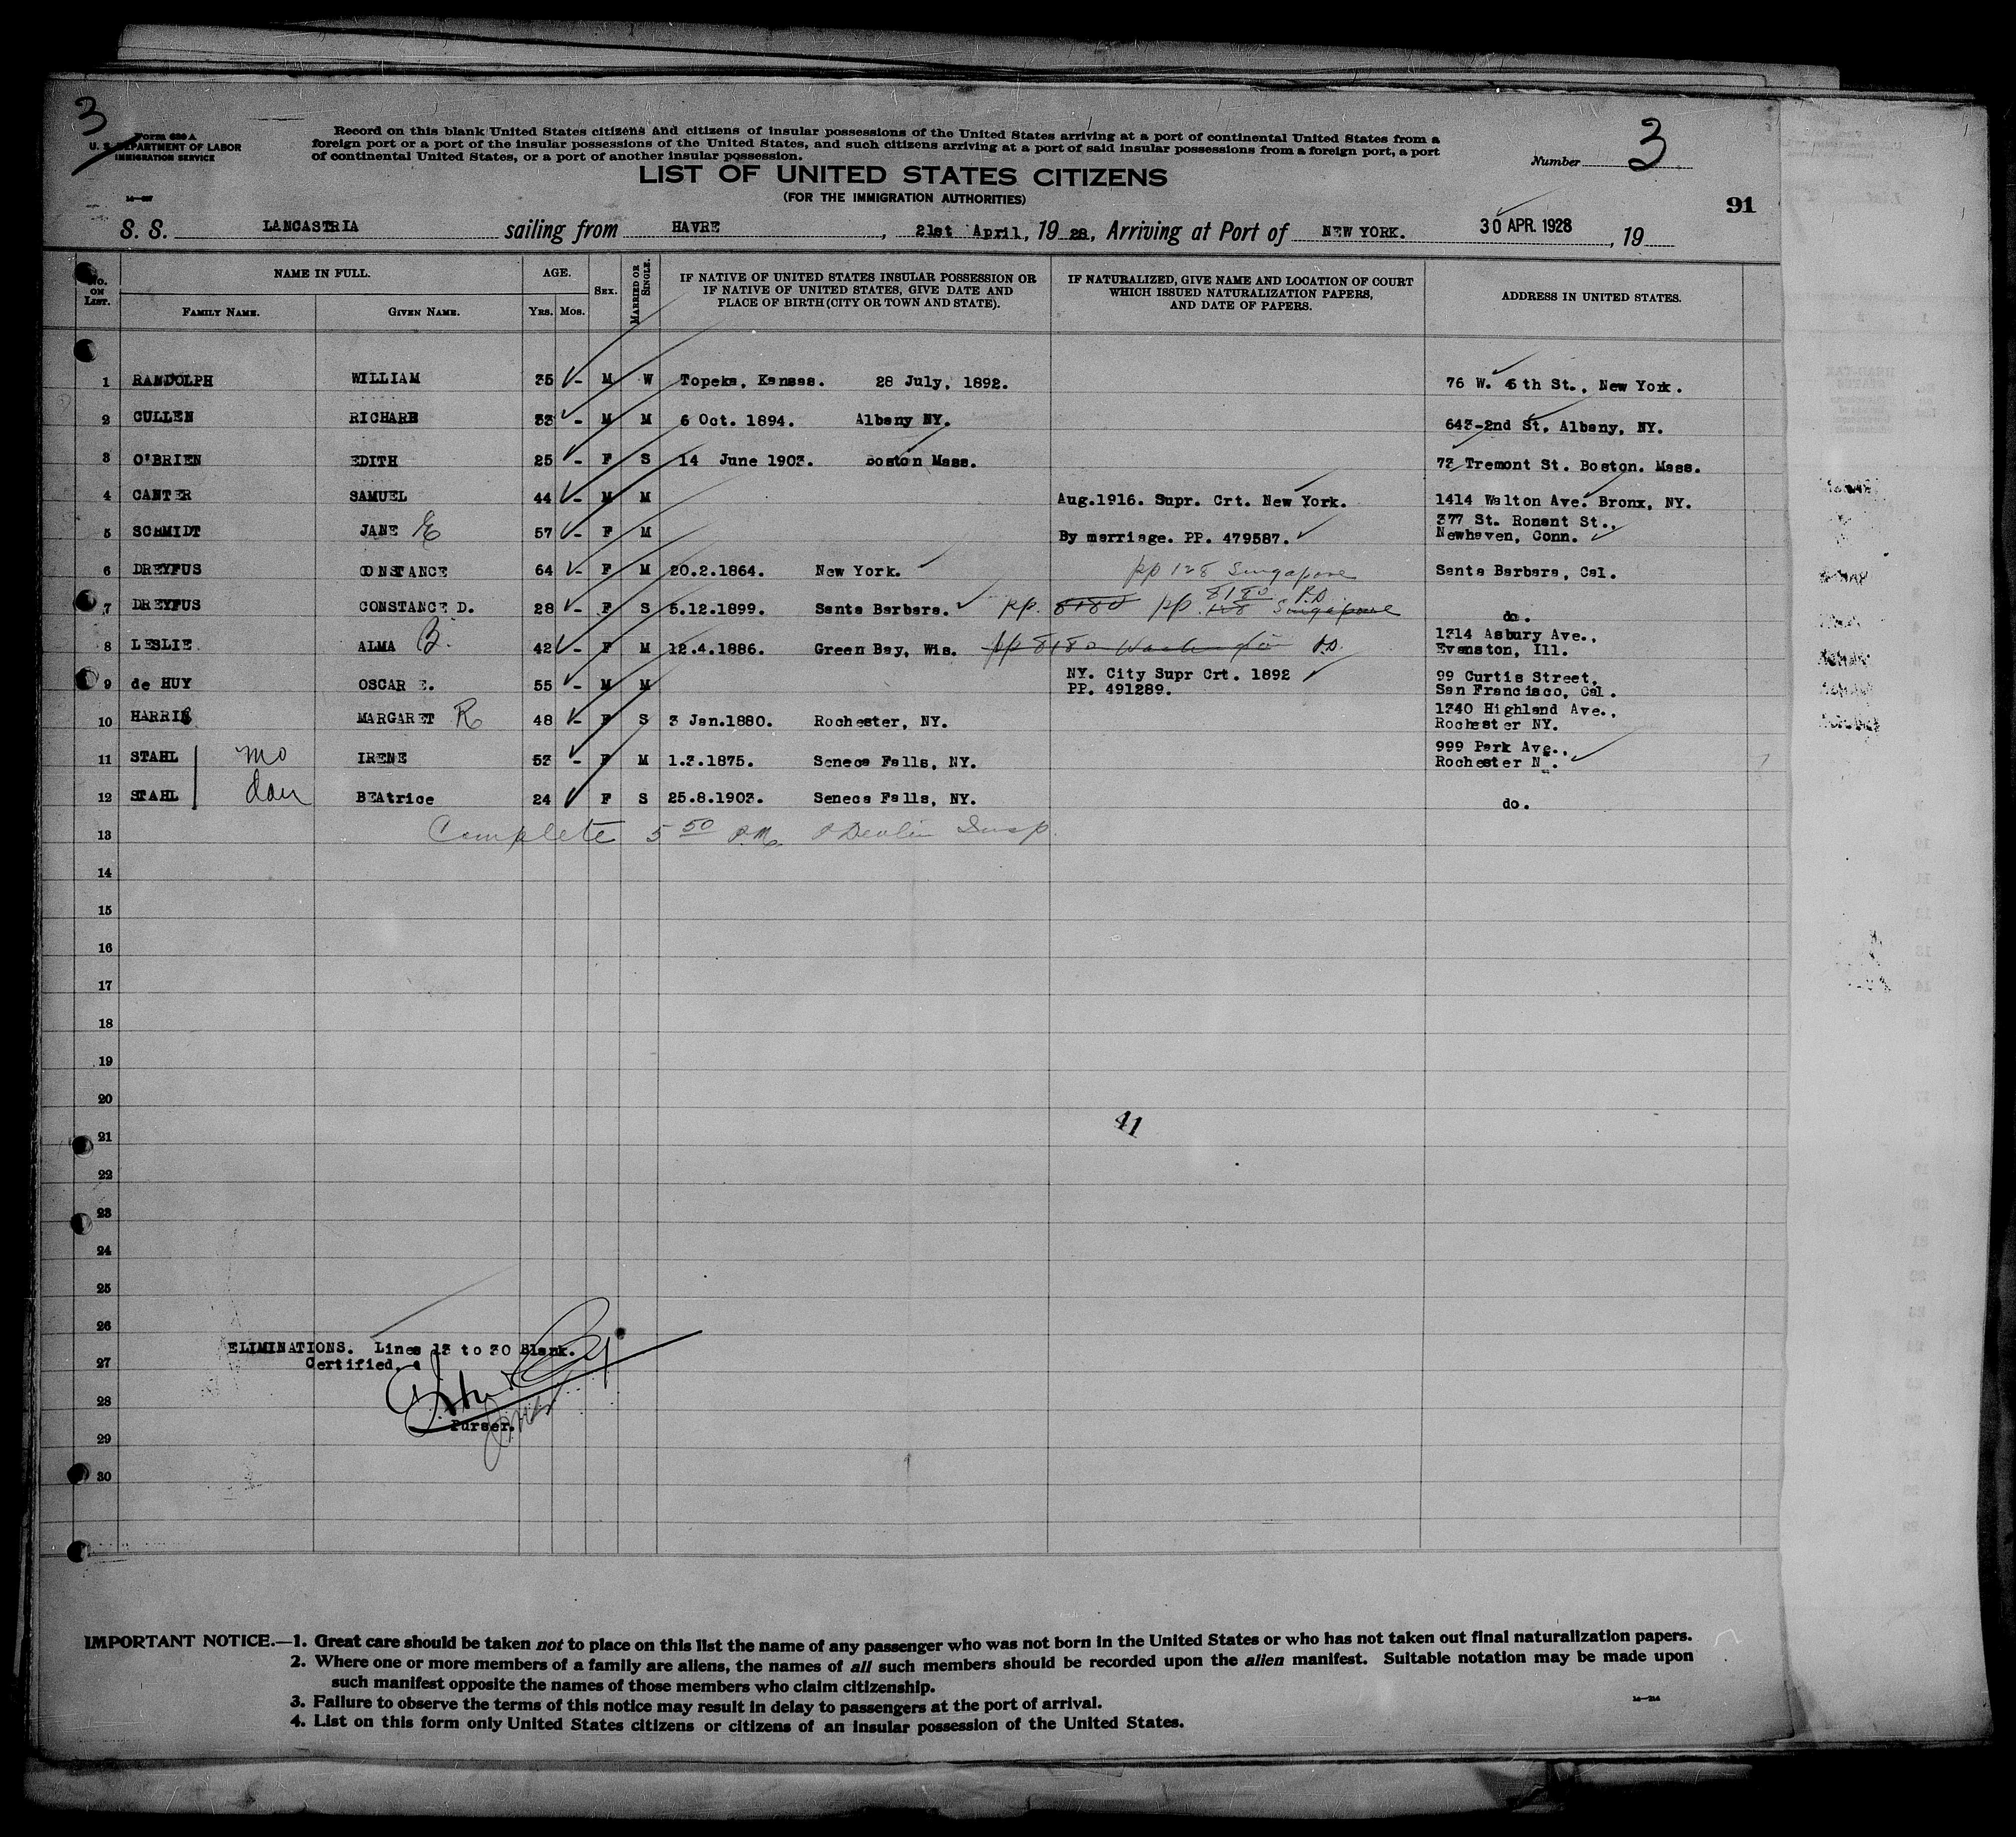 3
Form 630 A
U. S. DEPARTMENT OF LABOR
IMMIGRATION SERVICE
Record on this blank United States citizens and citizens of insular possessions of the United States arriving at a port of continental United States from a
foreign port or a port of the insular possessions of the United States, and such citizens arriving at a port of said insular possessions from a foreign port, a port
of continental United States, or a port of another insular possession.
Number 3
LIST OF UNITED STATES CITIZENS
(FOR THE IMMIGRATION AUTHORITIES)
91
S. S. LANCASTRIA sailing from HAVRE, 21st April, 1928, Arriving at Port of NEW YORK. 30 APR. 1928, 19
NO. ON LIST. NAME IN FULL. AGE. SEX. MARRIED OR SINGLE. IF NATIVE OF UNITED STATES INSULAR POSSESSION OR IF NATIVE OF UNITED STATES, GIVE DATE AND PLACE OF BIRTH (CITY OR TOWN AND STATE). IF NATURALIZED, GIVE NAME AND LOCATION OF COURT WHICH ISSUED NATURALIZATION PAPERS, AND DATE OF PAPERS. ADDRESS IN UNITED STATES.
FAMILY NAME. GIVEN NAME. YRS. MOS.
1 RANDOLPH WILLIAM 35 - M W Topeka, Kansas. 28 July, 1892. 76 W. 6th St., New York.
2 CULLEN RICHARD 33 - M M 6 Oct. 1894. Albany NY. 643-2nd St. Albany, NY.
3 O'BRIEN EDITH 25 - F S 14 June 1903. Boston Mass. 73 Tremont St. Boston. Mass.
4 CANTER SAMUEL 44 - M M Aug.1916. Supr. Crt. New York. 1414 Walton Ave. Bronx, NY.
5 SCHMIDT JANE E 57 - F M By marriage. PP. 479587. 377 St. Ronant St., Newhaven, Conn.
6 DREYFUS CONSTANCE 64 - F M 20.2.1864. New York. pp 128 Singapore Santa Barbara, Cal.
7 DREYFUS CONSTANCE D. 28 - F S 5.12.1899. Santa Barbara. pp. 8180 pp. 128 8180 Singapore P.D. do.
8 LESLIE ALMA B. 42 - F M 12.4.1886. Green Bay, Wis. pp 8180 Washington P.D. 1314 Asbury Ave., Evanston, Ill.
9 de HUY OSCAR E. 55 - M M NY. City Supr Crt. 1892 PP. 491289. 99 Curtis Street, San Francisco, Cal.
10 HARRIS MARGARET R 48 - F S 3 Jan.1880. Rochester, NY. 1340 Highland Ave., Rochester NY.
11 STAHL mo IRENE 53 - F M 1.3.1875. Seneca Falls, NY. 999 Park Ave., Rochester N.
12 STAHL dau BEAtrice 24 F S 25.8.1903. Seneca Falls, NY. do.
13 Complete 5 50 P.M. Devlin Insp.
14
15
16
17
18
19
20
21 41
22
23
24
25
26
ELIMINATIONS. Lines 13 to 30 Blank.
27 Certified.
28
Purser.
29
30
IMPORTANT NOTICE.—1. Great care should be taken not to place on this list the name of any passenger who was not born in the United States or who has not taken out final naturalization papers.
2. Where one or more members of a family are aliens, the names of all such members should be recorded upon the alien manifest. Suitable notation may be made upon
such manifest opposite the names of those members who claim citizenship.
3. Failure to observe the terms of this notice may result in delay to passengers at the port of arrival.
4. List on this form only United States citizens or citizens of an insular possession of the United States.